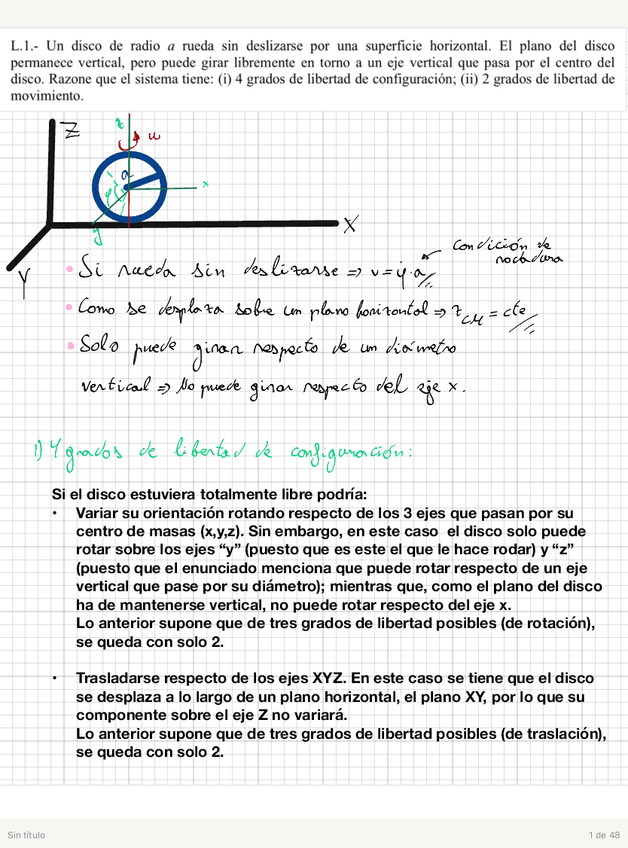 L.1.- Un disco de radio a rueda sin deslizarse por una superficie horizontal. El plano del disco
permanece vertical, pero puede girar libremente en torno a un eje vertical que pasa por el centro del
disco. Razone que el sistema tiene: (i) 4 grados de libertad de configuración; (ii) 2 grados de libertad de
movimiento.
Z
z
ω
a
x
φ
y
X
Y
Condición de
rodadura
• Si rueda sin deslizarse => v = φ̇·a //
• Como se desplaza sobre un plano horizontal => z_CM = cte //
• Solo puede girar respecto de un diámetro
vertical => No puede girar respecto del eje x.
1) 4 grados de libertad de configuración:
Si el disco estuviera totalmente libre podría:
• Variar su orientación rotando respecto de los 3 ejes que pasan por su
centro de masas (x,y,z). Sin embargo, en este caso el disco solo puede
rotar sobre los ejes “y” (puesto que es este el que le hace rodar) y “z”
(puesto que el enunciado menciona que puede rotar respecto de un eje
vertical que pase por su diámetro); mientras que, como el plano del disco
ha de mantenerse vertical, no puede rotar respecto del eje x.
Lo anterior supone que de tres grados de libertad posibles (de rotación),
se queda con solo 2.
• Trasladarse respecto de los ejes XYZ. En este caso se tiene que el disco
se desplaza a lo largo de un plano horizontal, el plano XY, por lo que su
componente sobre el eje Z no variará.
Lo anterior supone que de tres grados de libertad posibles (de traslación),
se queda con solo 2.
Sin título
1 de 48